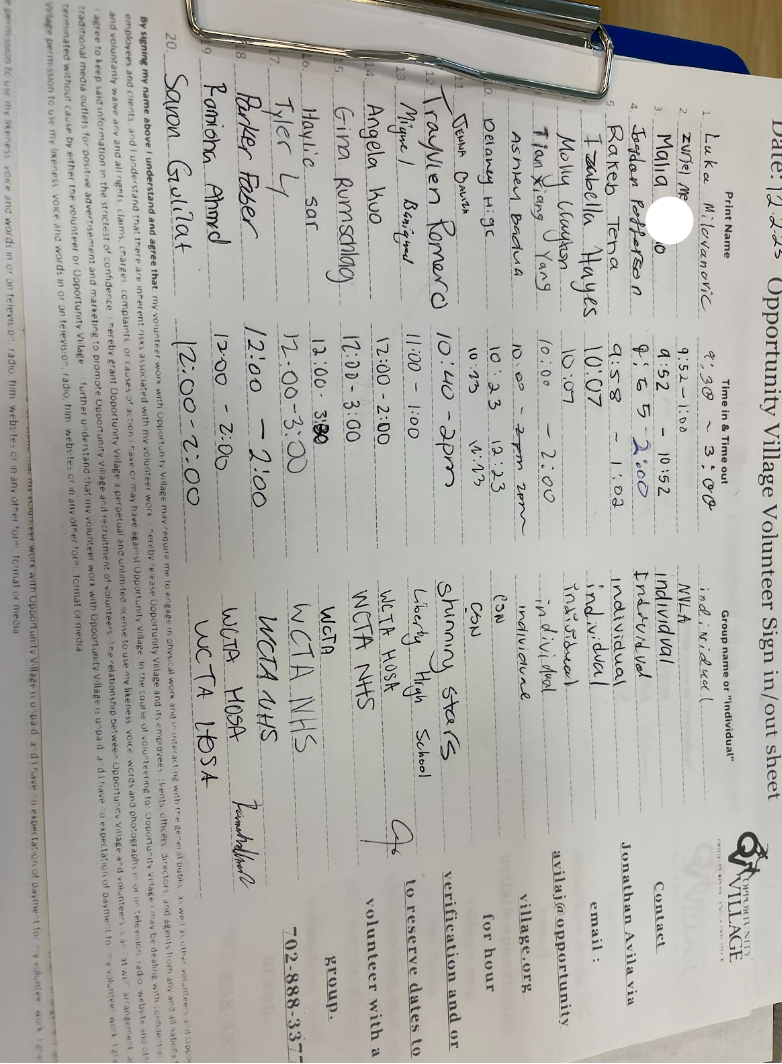 Date: 12.2.23 Opportunity Village Volunteer Sign in/out sheet
Print Name Time in & Time out Group name or "Individual"
1. Luka Milovanovic 9:30 ~ 3:00 individual
2. 9:52-1:00
3. Malia 9:52 - 10:52 Individual
4. Jordan Patterson 9:55 - 2:00 Individual
5. Rakeb Tena 9:58 ~ 1:02 individual
Izabella Hayes 10:07 individual
Molly 10:07 individual
Tianxiang Yang 10:00 - 2:00 individual
Ashley Badua 10:00 - 2pm individual
10. Delaney 10:23 12:23 CSN
11. Jenna CSN
12. Trayvien Romero 10:40 - 2pm Shinny Stars
13. Miguel 11:00 - 1:00 Liberty High School
14. Angela Kuo 12:00 - 2:00 WCTA HOSA
15. Gina Rumschlag 12:00 - 3:00 WCTA NHS
16. Haylie Sar 12:00 - WCTA
17. Tyler Ly 12:00-3:00 WCTA NHS
18. Parker Faber 12:00 - 2:00 WCTA NHS
19. Ramisha Ahmed 12:00 - 2:00 WCTA HOSA
20. Savon Gulilat 12:00-2:00 WCTA HOSA
OPPORTUNITY
VILLAGE
Contact
Jonathan Avila via
email :
avilaj@opportunity
village.org
for hour
verification and or
to reserve dates to
volunteer with a
group.
702-888-337
By signing my name above I understand and agree that my volunteer work with Opportunity Village may require me to engage in physical work and in interacting with the general public as well as other volunteers and
employees and clients, and I understand that there are inherent risks associated with my volunteer work. I hereby release Opportunity Village and its employees, clients, officers, directors, and agents from any and all
and voluntarily waive any and all rights, claims, charges, complaints, or causes of action I have or may have against Opportunity Village. In the course of volunteering for Opportunity Village I may be dealing with
I agree to keep said information in the strictest of confidence. I hereby grant Opportunity Village a perpetual and unlimited license to use my likeness, voice, words and photographs in or on television, radio, website and
traditional media outlets for positive advertisement and marketing to promote Opportunity Village and recruitment of volunteers. The relationship between Opportunity Village and volunteers is an at will arrangement
terminated without cause by either the volunteer or Opportunity Village. I further understand that my volunteer work with Opportunity Village is unpaid, and I have no expectation of payment for my volunteer work. I
Village permission to use my likeness, voice and words in or on television, radio, film, websites or in any other form, format or media